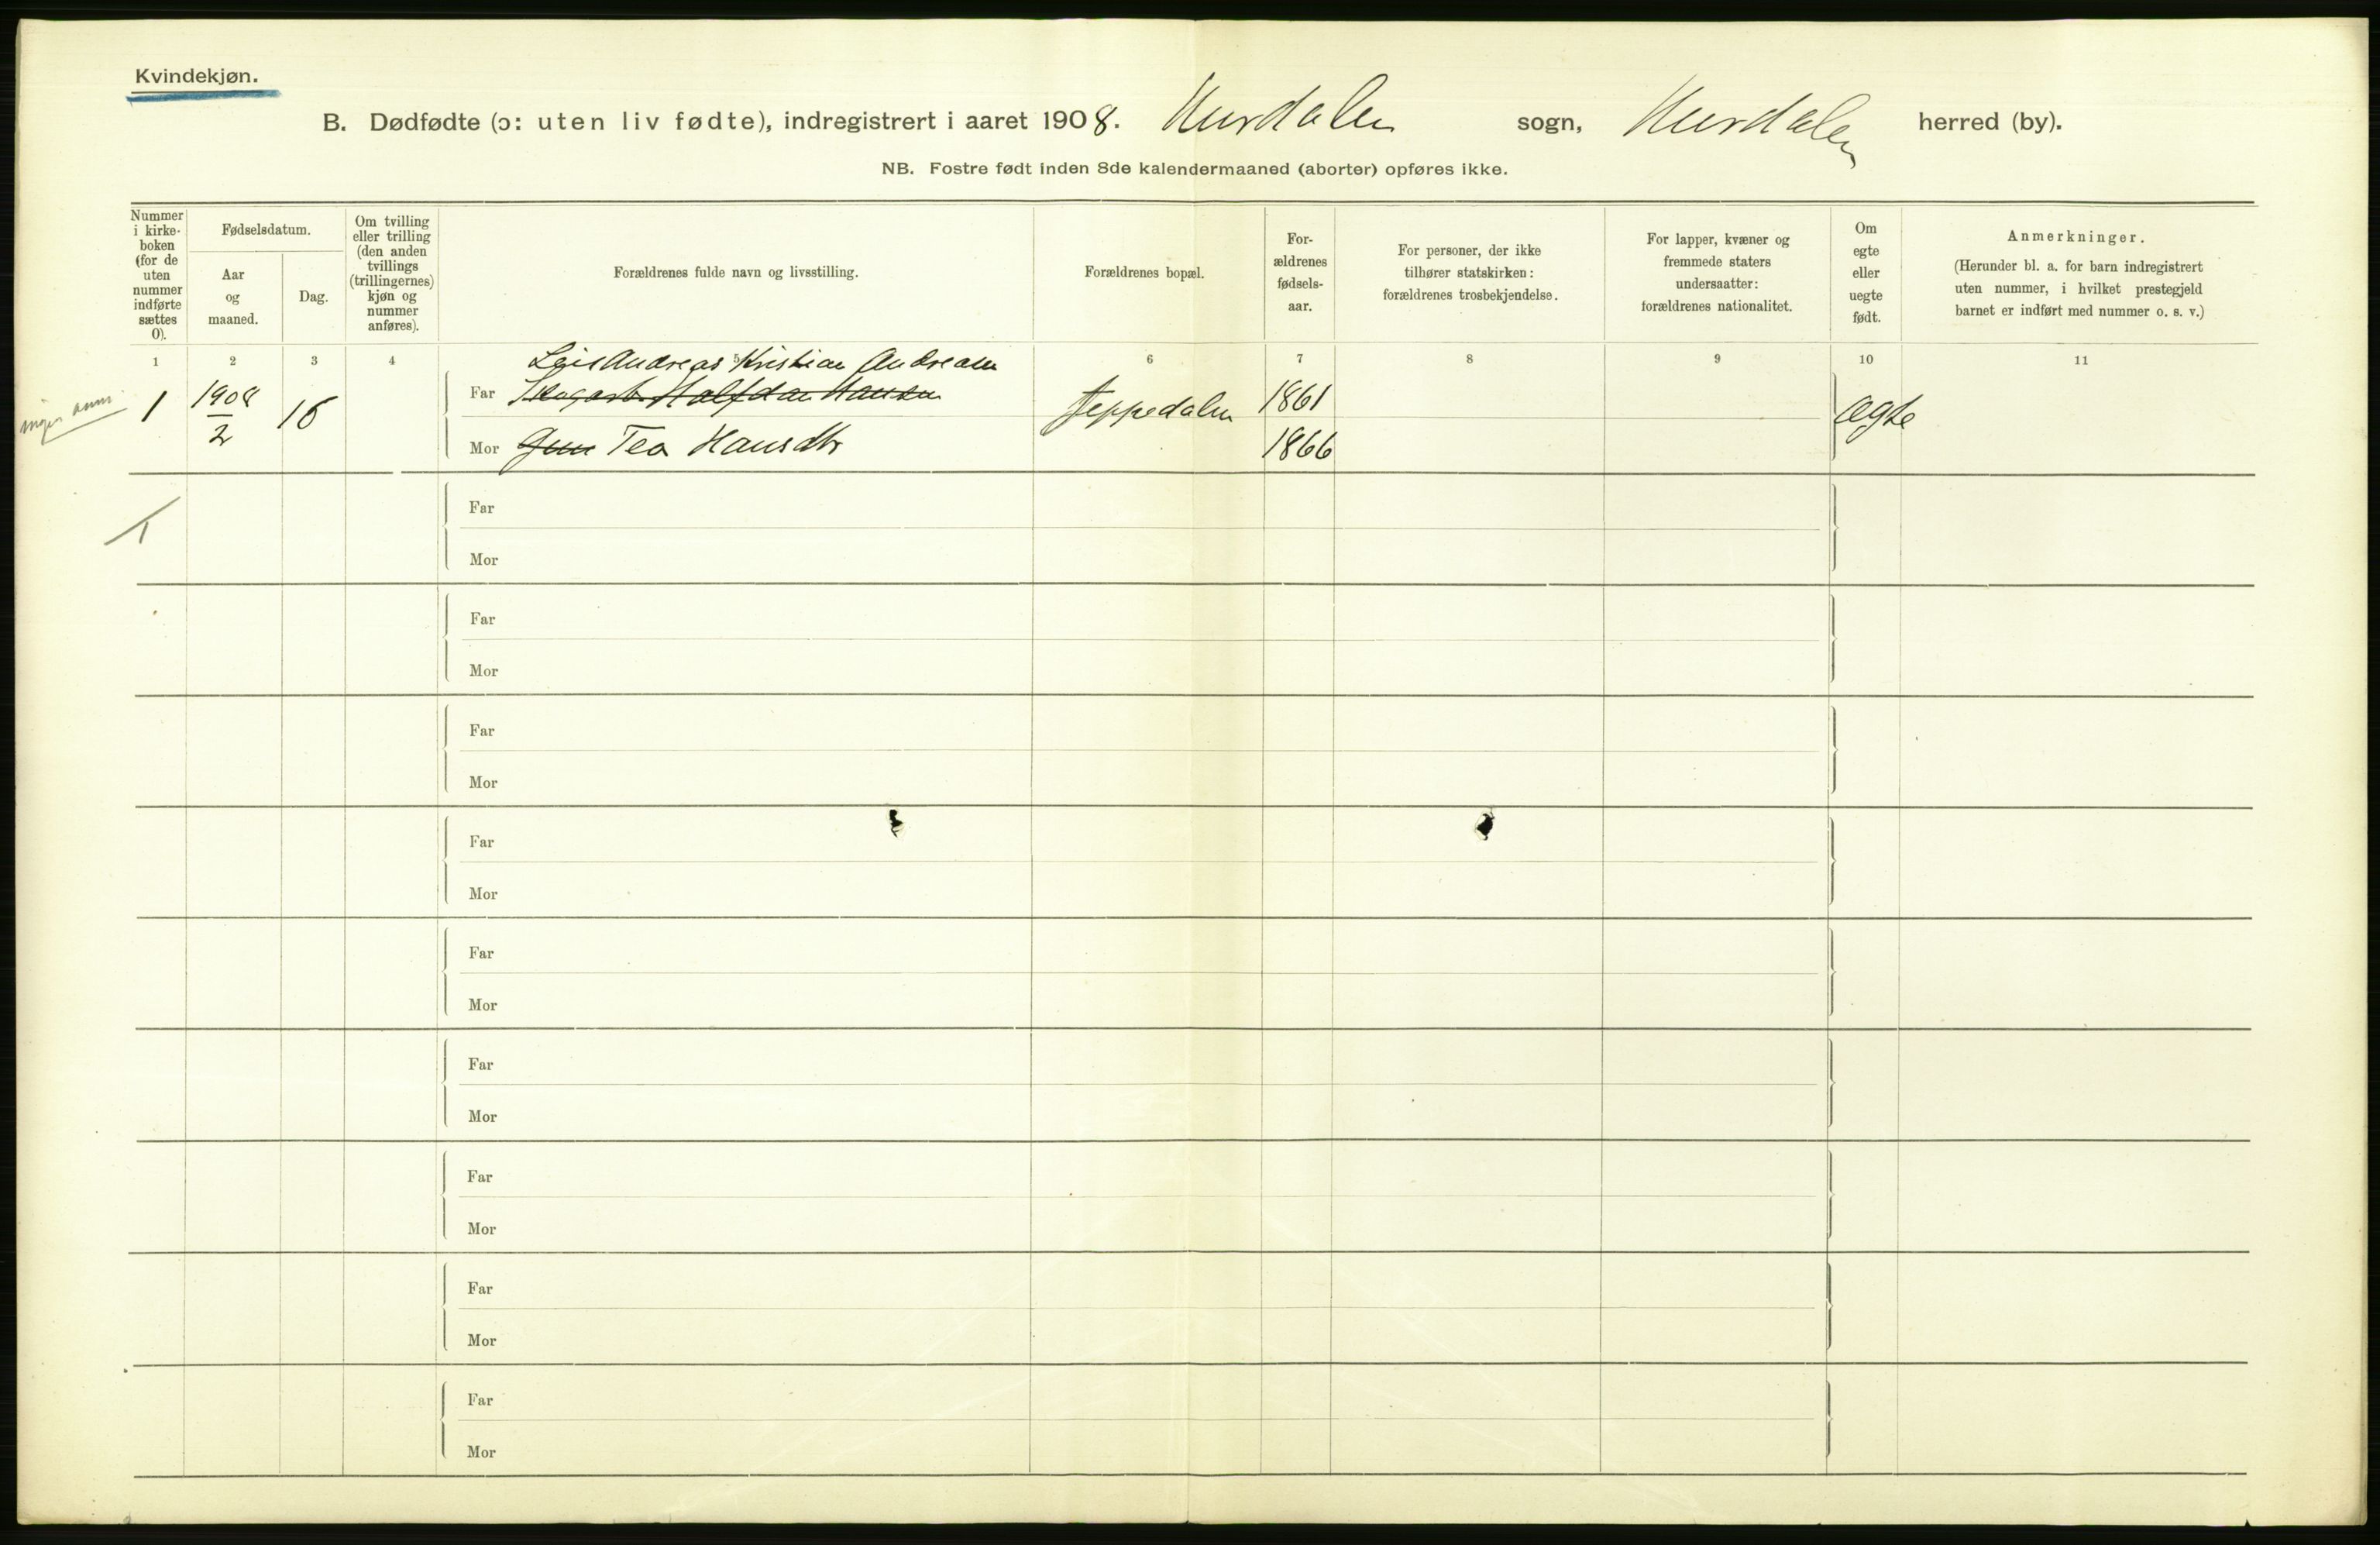 Kvindekjøn.
B. Dødfødte (ɔ: uten liv fødte), indregistrert i aaret 1908. Hurdalen sogn, Hurdalen herred (by).
NB. Fostre født inden 8de kalendermaaned (aborter) opføres ikke.
Nummer i kirke-boken (for de uten nummer indførte sættes 0).
Fødselsdatum.
Aar og maaned.
Dag.
Om tvilling eller trilling (den anden tvillings (trillingernes) kjøn og nummer anføres).
Forældrenes fulde navn og livsstilling.
Forældrenes bopæl.
For-ældrenes fødsels-aar.
For personer, der ikke tilhører statskirken: forældrenes trosbekjendelse.
For lapper, kvæner og fremmede staters undersaatter: forældrenes nationalitet.
Om egte eller uegte født.
Anmerkninger.
(Herunder bl. a. for barn indregistrert uten nummer, i hvilket prestegjeld barnet er indført med nummer o. s. v.)
1 2 3 4 5 6 7 8 9 10 11
Andreas Kristian Andreasen
1 1908/2 16 Far Halfdan Hansen Jeppedalen 1861 ægte
Mor Tea Hansdtr 1866
Far
Mor
Far
Mor
Far
Mor
Far
Mor
Far
Mor
Far
Mor
Far
Mor
Far
Mor
Far
Mor